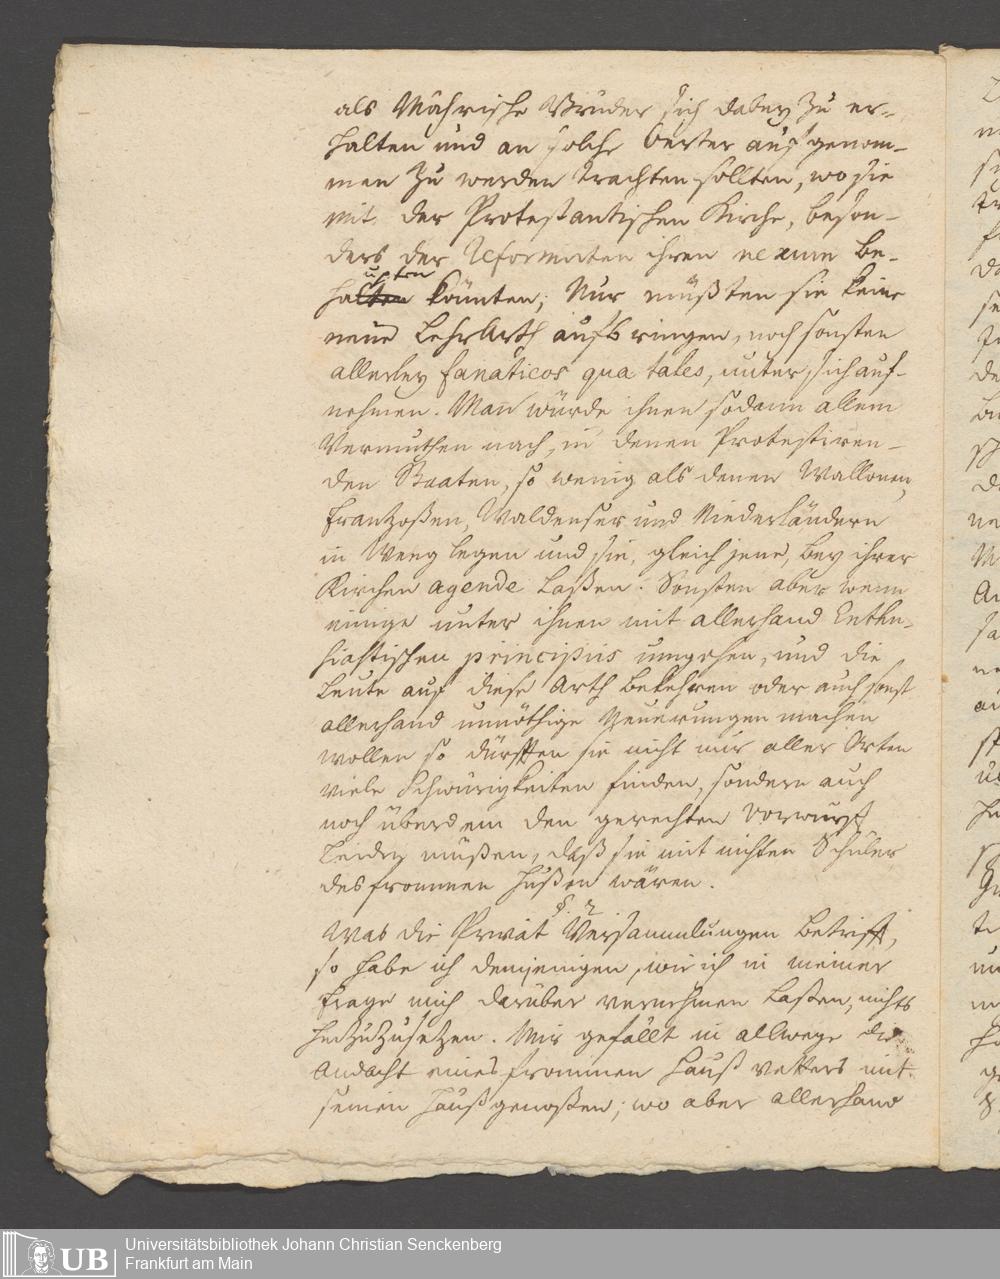 als Mährische Brüder sich dabey zu er-
halten und an solche Oerter aufgenom-
men zu werden trachten sollten, wo sie
mit der Protestantischen Kirche, beson-
ders der Reformirten ihren nexum be-
haupten könnten; Nur müßten sie keine
neue LehrArth aufbringen, noch sonsten
allerley fanaticos qua tales, unter sich auf-
nehmen. Man würde ihnen sodann allem
Vermuthen nach, in denen Protestiren-
den Staaten, so wenig als denen Wallonen,
Frantzoßen, Waldenser und Niederländern
in Weeg legen und sie, gleich jene, bey ihrer
Kirchen agende laßen. Sonsten aber wenn
einige unter ihnen mit allerhand Enthu-
siastischen principiis umgehen, und die
Leute auf diese Arth bekehren oder auch sonst
allerhand unnöthige Neuerungen machen
wollen so dürften sie nicht nur aller Orten
viele Schwürigkeiten finden, sondern auch
noch überdem den gerechten Vorwurf
leiden müßen, daß sie mit nichten Schüler
des frommen Hußen wären.
§. 2
Was die Privat Versammlungen betrifft,
so habe ich demjenigen, wie ich in meiner
Frage mich darüber vernehmen laßen, nichts
hinzuzusetzen. Mir gefällt in allwege die
Andacht eines frommen Hauß Vatters mit
seinen Haußgenoßen; wo aber allerhand
UB
Universitätsbibliothek Johann Christian Senckenberg
Frankfurt am Main